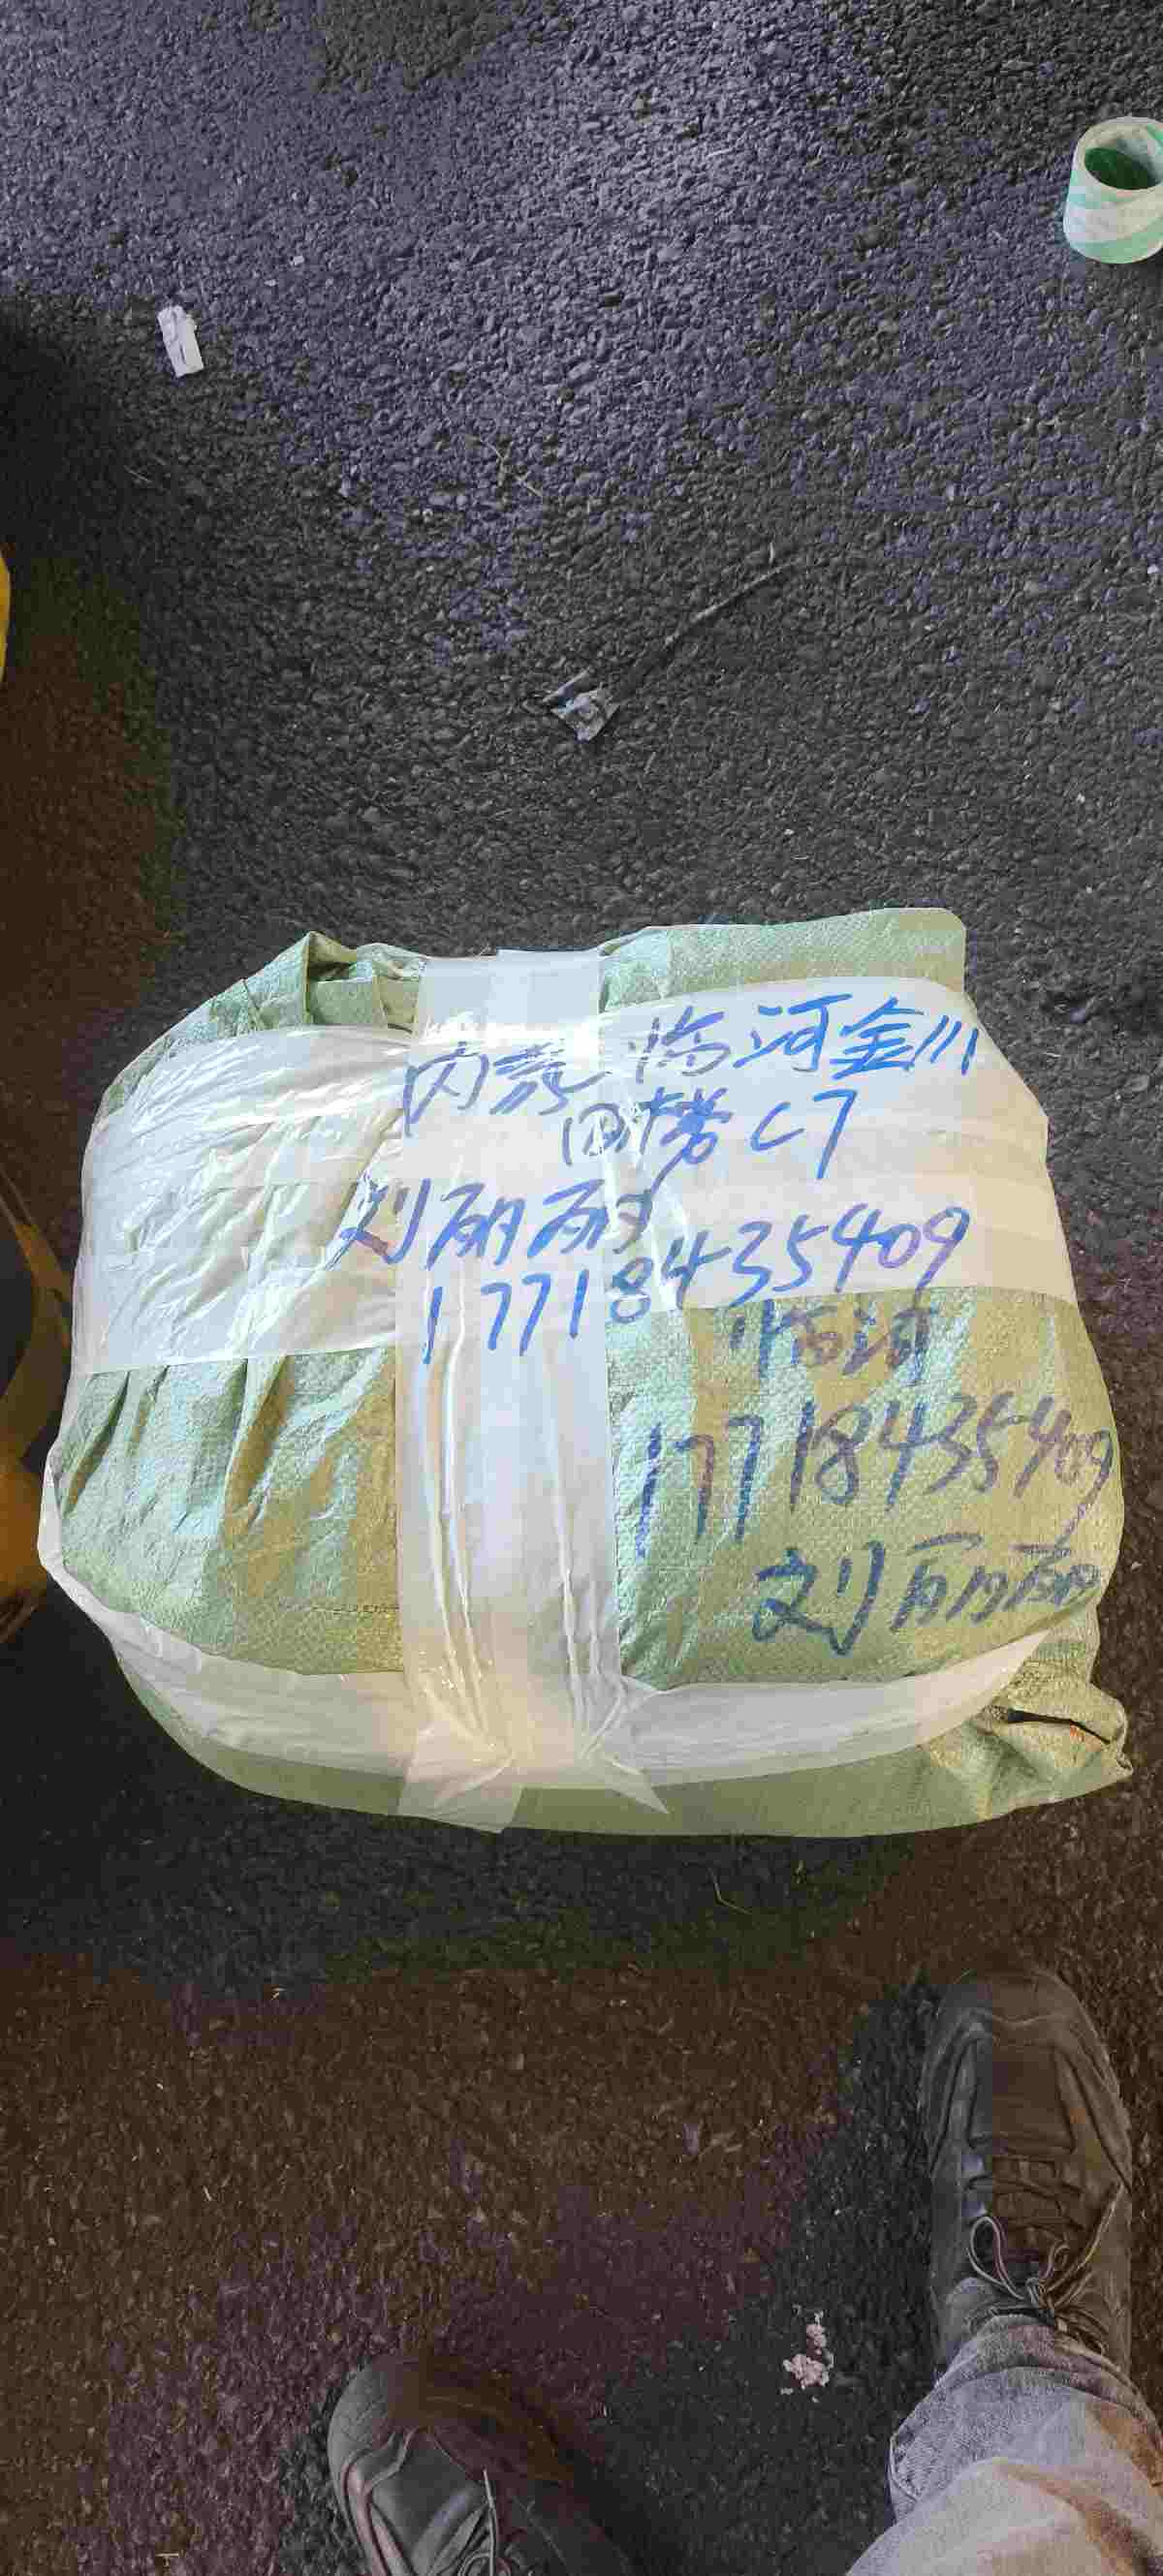 内蒙临河金川
四楼C7
刘丽丽
17718435409
临河
17718435409
刘丽丽